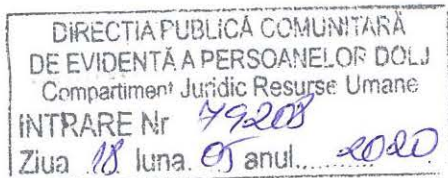 DIRECŢIA PUBLICĂ COMUNITARĂ
DE EVIDENŢĂ A PERSOANELOR DOLJ
Compartiment Juridic Resurse Umane
INTRARE Nr 79208
Ziua 18 luna. 05 anul..... 2020